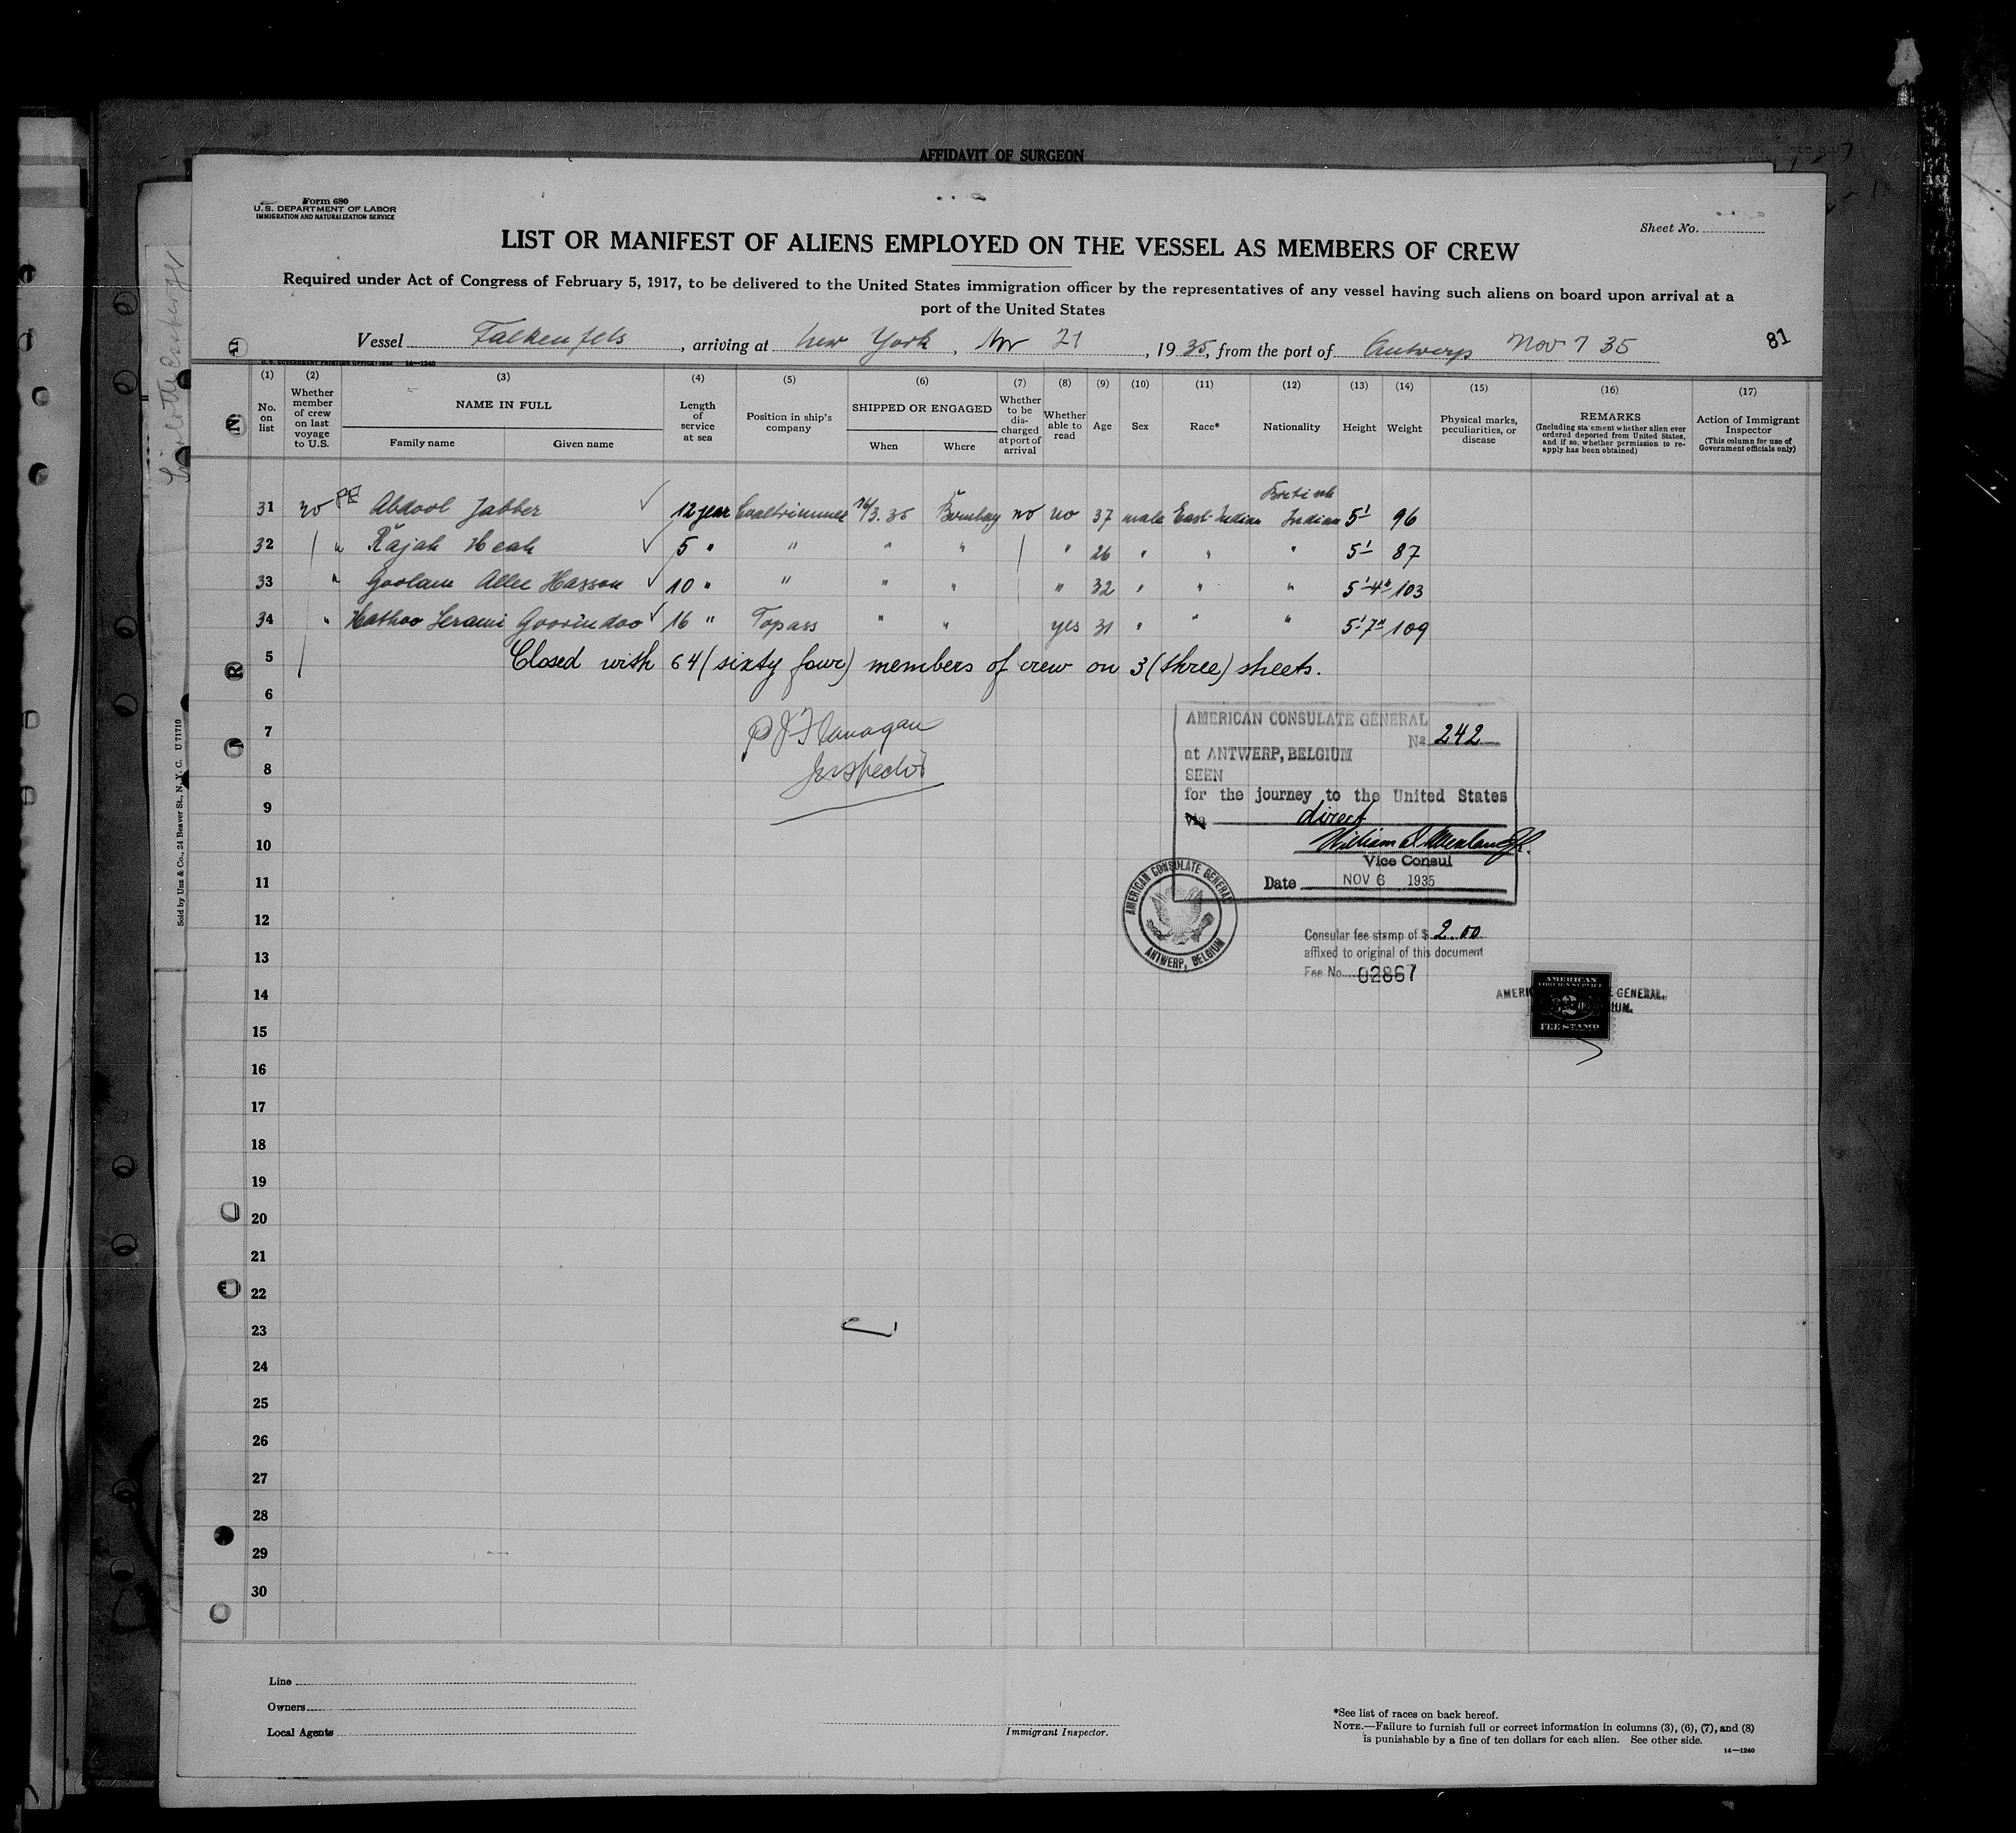 AFFIDAVIT OF SURGEON
Form 680
U.S. DEPARTMENT OF LABOR
IMMIGRATION AND NATURALIZATION SERVICE
Sheet No.
LIST OR MANIFEST OF ALIENS EMPLOYED ON THE VESSEL AS MEMBERS OF CREW
Required under Act of Congress of February 5, 1917, to be delivered to the United States immigration officer by the representatives of any vessel having such aliens on board upon arrival at a
port of the United States
Vessel Falkenfels, arriving at New York, Nov 21, 1935, from the port of Antwerp Nov 7 35
81
U.S. GOVERNMENT PRINTING OFFICE: 1934 14—1240
(1) (2) (3) (4) (5) (6) (7) (8) (9) (10) (11) (12) (13) (14) (15) (16) (17)
No. on list
Whether member of crew on last voyage to U.S.
NAME IN FULL
Family name Given name
Length of service at sea
Position in ship's company
SHIPPED OR ENGAGED
When Where
Whether to be discharged at port of arrival
Whether able to read
Age
Sex
Race*
Nationality
Height
Weight
Physical marks, peculiarities, or disease
REMARKS
(Including statement whether alien ever ordered deported from United States, and if so, whether permission to re-apply has been obtained)
Action of Immigrant Inspector
(This column for use of Government officials only)
31 no Abdool Jabber 12 year Coaltrimmer /3. 35 Bombay no no 37 male East-Indian British Indian 5' 96
32 " Rajah Heah 5 " " " " " 26 " " " 5' 87
33 " Goolam Allee Hasson 10 " " " " " 32 " " " 5'4" 103
34 " Goovindoo 16 " Topass " " yes 31 " " " 5'7" 109
5 Closed with 64 (sixty four) members of crew on 3 (three) sheets.
6
7 P J Flanagan
8 Inspector
9
10
11
12
13
14
15
16
17
18
19
20
21
22
23
24
25
26
27
28
29
30
AMERICAN CONSULATE GENERAL
No 242
at ANTWERP, BELGIUM
SEEN
for the journey to the United States
via direct
Vice Consul
Date NOV 6 1935
AMERICAN CONSULATE GENERAL
ANTWERP, BELGIUM
Consular fee stamp of $ 2.00
affixed to original of this document
Fee No. 02867
AMERICAN
FOREIGN SERVICE
2
FEE STAMP
GENERAL,
Sold by Unz & Co., 24 Beaver St., N. Y. C. U 71710
Line
Owners
Local Agents
Immigrant Inspector.
*See list of races on back hereof.
NOTE.—Failure to furnish full or correct information in columns (3), (6), (7), and (8)
is punishable by a fine of ten dollars for each alien. See other side.
14—1240